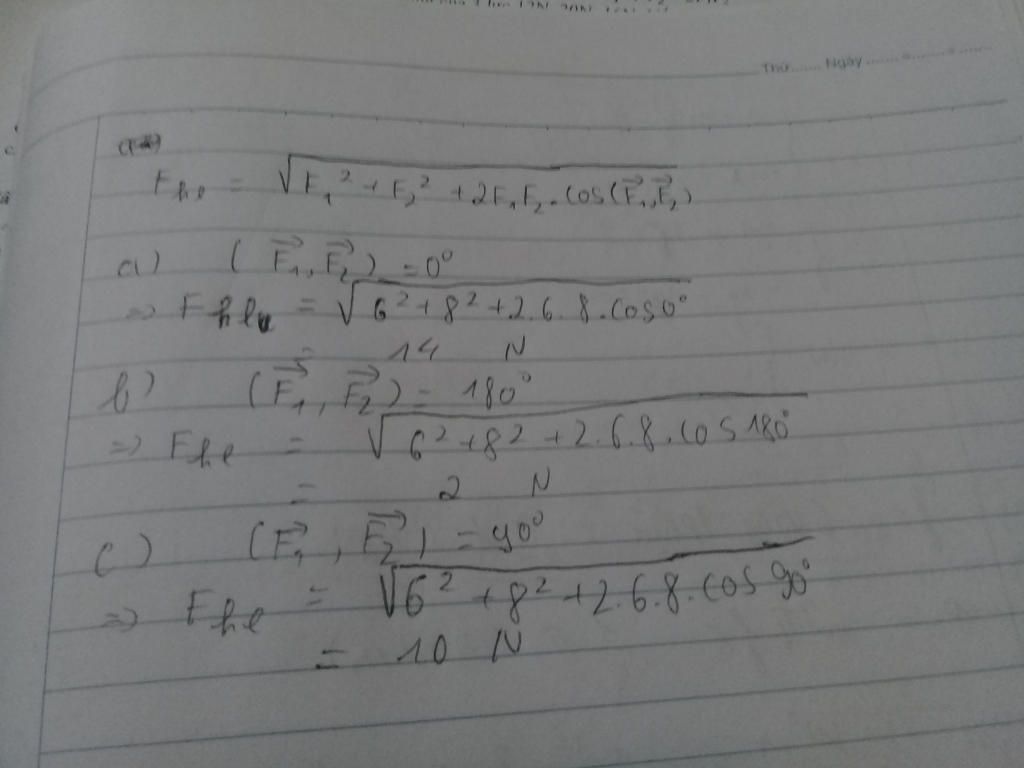 Thứ ....... Ngày .......
F_hl = √(F₁² + F₂² + 2F₁F₂.cos(F₁⃗, F₂⃗))
a) (F₁⃗, F₂⃗) = 0°
=> F_hl = √(6² + 8² + 2.6.8.cos0°)
= 14 N
b) (F₁⃗, F₂⃗) = 180°
=> F_hl = √(6² + 8² + 2.6.8.cos180°)
= 2 N
c) (F₁⃗, F₂⃗) = 90°
=> F_hl = √(6² + 8² + 2.6.8.cos90°)
= 10 N